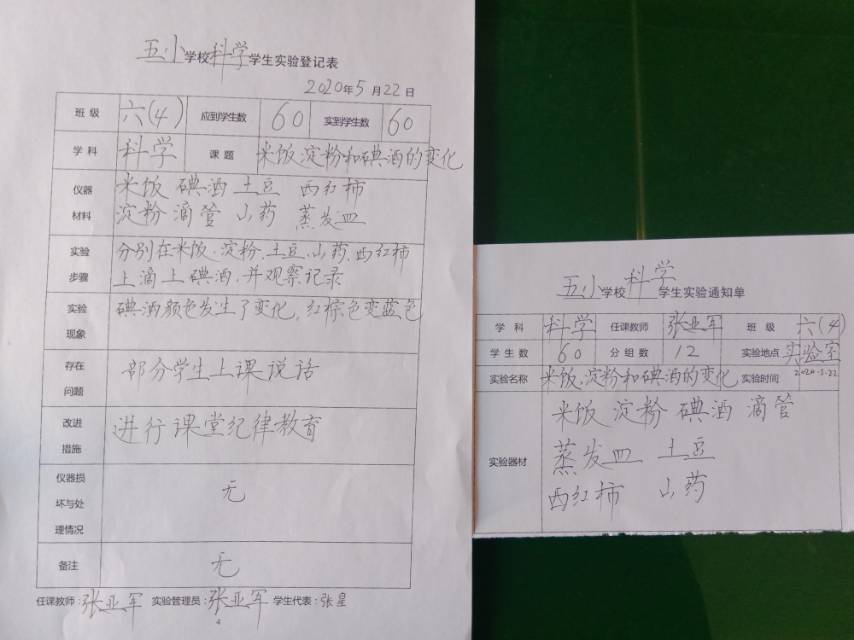 五小学校科学学生实验登记表
2020年5月22日
班级 六(4) 应到学生数 60 实到学生数 60
学科 科学 课题 米饭、淀粉和碘酒的变化
仪器材料 米饭 碘酒 土豆 西红柿
淀粉 滴管 山药 蒸发皿
实验步骤 分别在米饭、淀粉、土豆、山药、西红柿
上滴上碘酒,并观察记录
实验现象 碘酒颜色发生了变化,红棕色变蓝色
存在问题 部分学生上课说话
改进措施 进行课堂纪律教育
仪器损坏与处理情况 无
备注 无
任课教师:张亚军 实验管理员:张亚军 学生代表:张星
4
五小学校科学学生实验通知单
学科 科学 任课教师 张亚军 班级 六(4)
学生数 60 分组数 12 实验地点 实验室
实验名称 米饭、淀粉和碘酒的变化 实验时间 2020.5.22
实验器材 米饭 淀粉 碘酒 滴管
蒸发皿 土豆
西红柿 山药